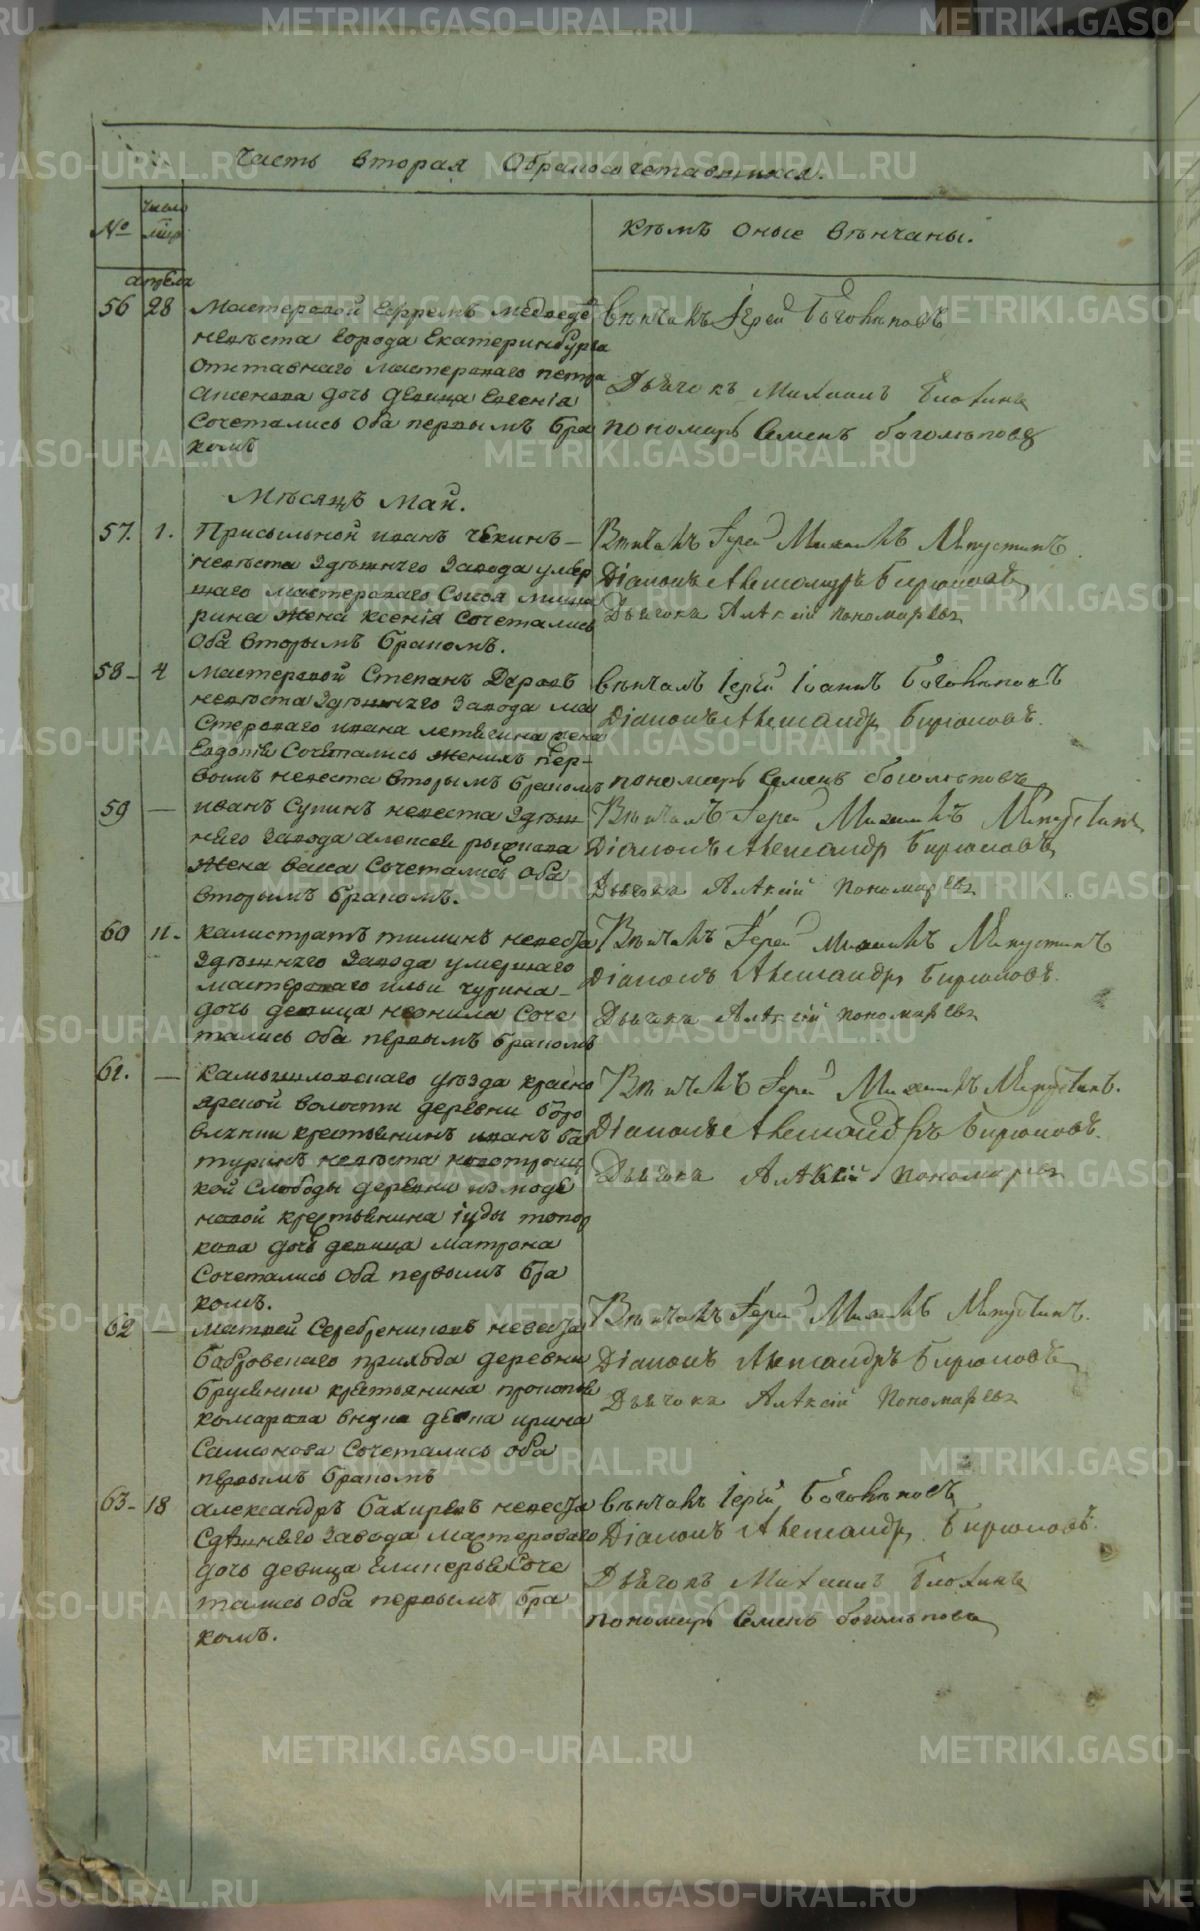 Часть вторая Обракосочетавшихся.
№
число
апреля
кѣмъ оные вѣнчаны.
56 28 Мастеровой Ефремъ Медведе
невѣста города Екатеринбурга
отставнаго мастероваго петра
дочь девица Евгенiя
Сочетались Оба первымъ бра
комъ
вѣнчалъ Iерей Боголѣповъ
Дьячокъ Михаилъ Блохинъ
пономарь Семенъ боголѣповъ
Мѣсяцъ Май.
57. 1. Присыльной иванъ чекинъ
невѣста здѣшнего завода умер
шаго мастероваго
рина жена ксенiя сочетались
Оба вторымъ бракомъ.
Вѣнчалъ Iерей Михаилъ
Дiаконъ Александръ Бирюковъ
Дьячокъ Алѣксiй пономаревъ
58 4 мастеровой Степанъ
невѣста здѣшнего завода ма
стероваго ивана летягина жена
Евдотiя Сочетались жених пер-
вымъ невеста вторымъ бракомъ
вѣнчалъ Iерей Iоаннъ Боголѣповъ
Дiаконъ Александръ Бирюковъ.
пономарь Семенъ боголѣповъ
59 — иванъ Сутинъ невеста здѣш
него завода алексея
жена васса Сочетались оба
вторымъ бракомъ.
Вѣнчалъ Iерей Михаилъ
Дiаконъ Александръ Бирюковъ
Дьячокъ Алѣксiй Пономаревъ
60 11. калистратъ тиминъ невеста
здѣшнего завода умершаго
мастероваго ильи чурина
дочь девица неонила Соче
тались оба первымъ бракомъ
Вѣнчалъ Iерей Михаилъ
Дiаконъ Александръ Бирюковъ.
Дьячокъ Алѣксiй пономаревъ
61. — камышловскаго уѣзда красно
ярской волости деревни боро
влянки крестьянинъ иванъ ба
туринъ невѣста новотроиц
кой слободы деревни
крестьянина iуды топор
кова дочь девица матрона
Сочетались Оба первымъ бра
комъ.
Вѣнчалъ Iерей Михаилъ
Дiаконъ Александръ Бирюковъ.
Дьячокъ Алѣксiй пономаревъ
62 — матвей Серебрениковъ невеста
бобровскаго прихода деревни
крестьянина прокопея
комарова внука девка ирина
Самсонова Сочетались оба
первымъ бракомъ
Вѣнчалъ Iерей Михаилъ
Дiаконъ Александръ Бирюковъ
Дьячокъ Алѣксiй Пономаревъ
63- 18 александръ бахиревъ невеста
завода мастероваго
дочь девица Соче
тались оба первымъ бра
комъ.
вѣнчалъ Iерей Боголѣповъ
Дiаконъ Александръ Бирюковъ.
Дьячокъ Михаилъ Блохинъ
пономарь Семенъ боголѣповъ
METRIKI.GASO-URAL.RU